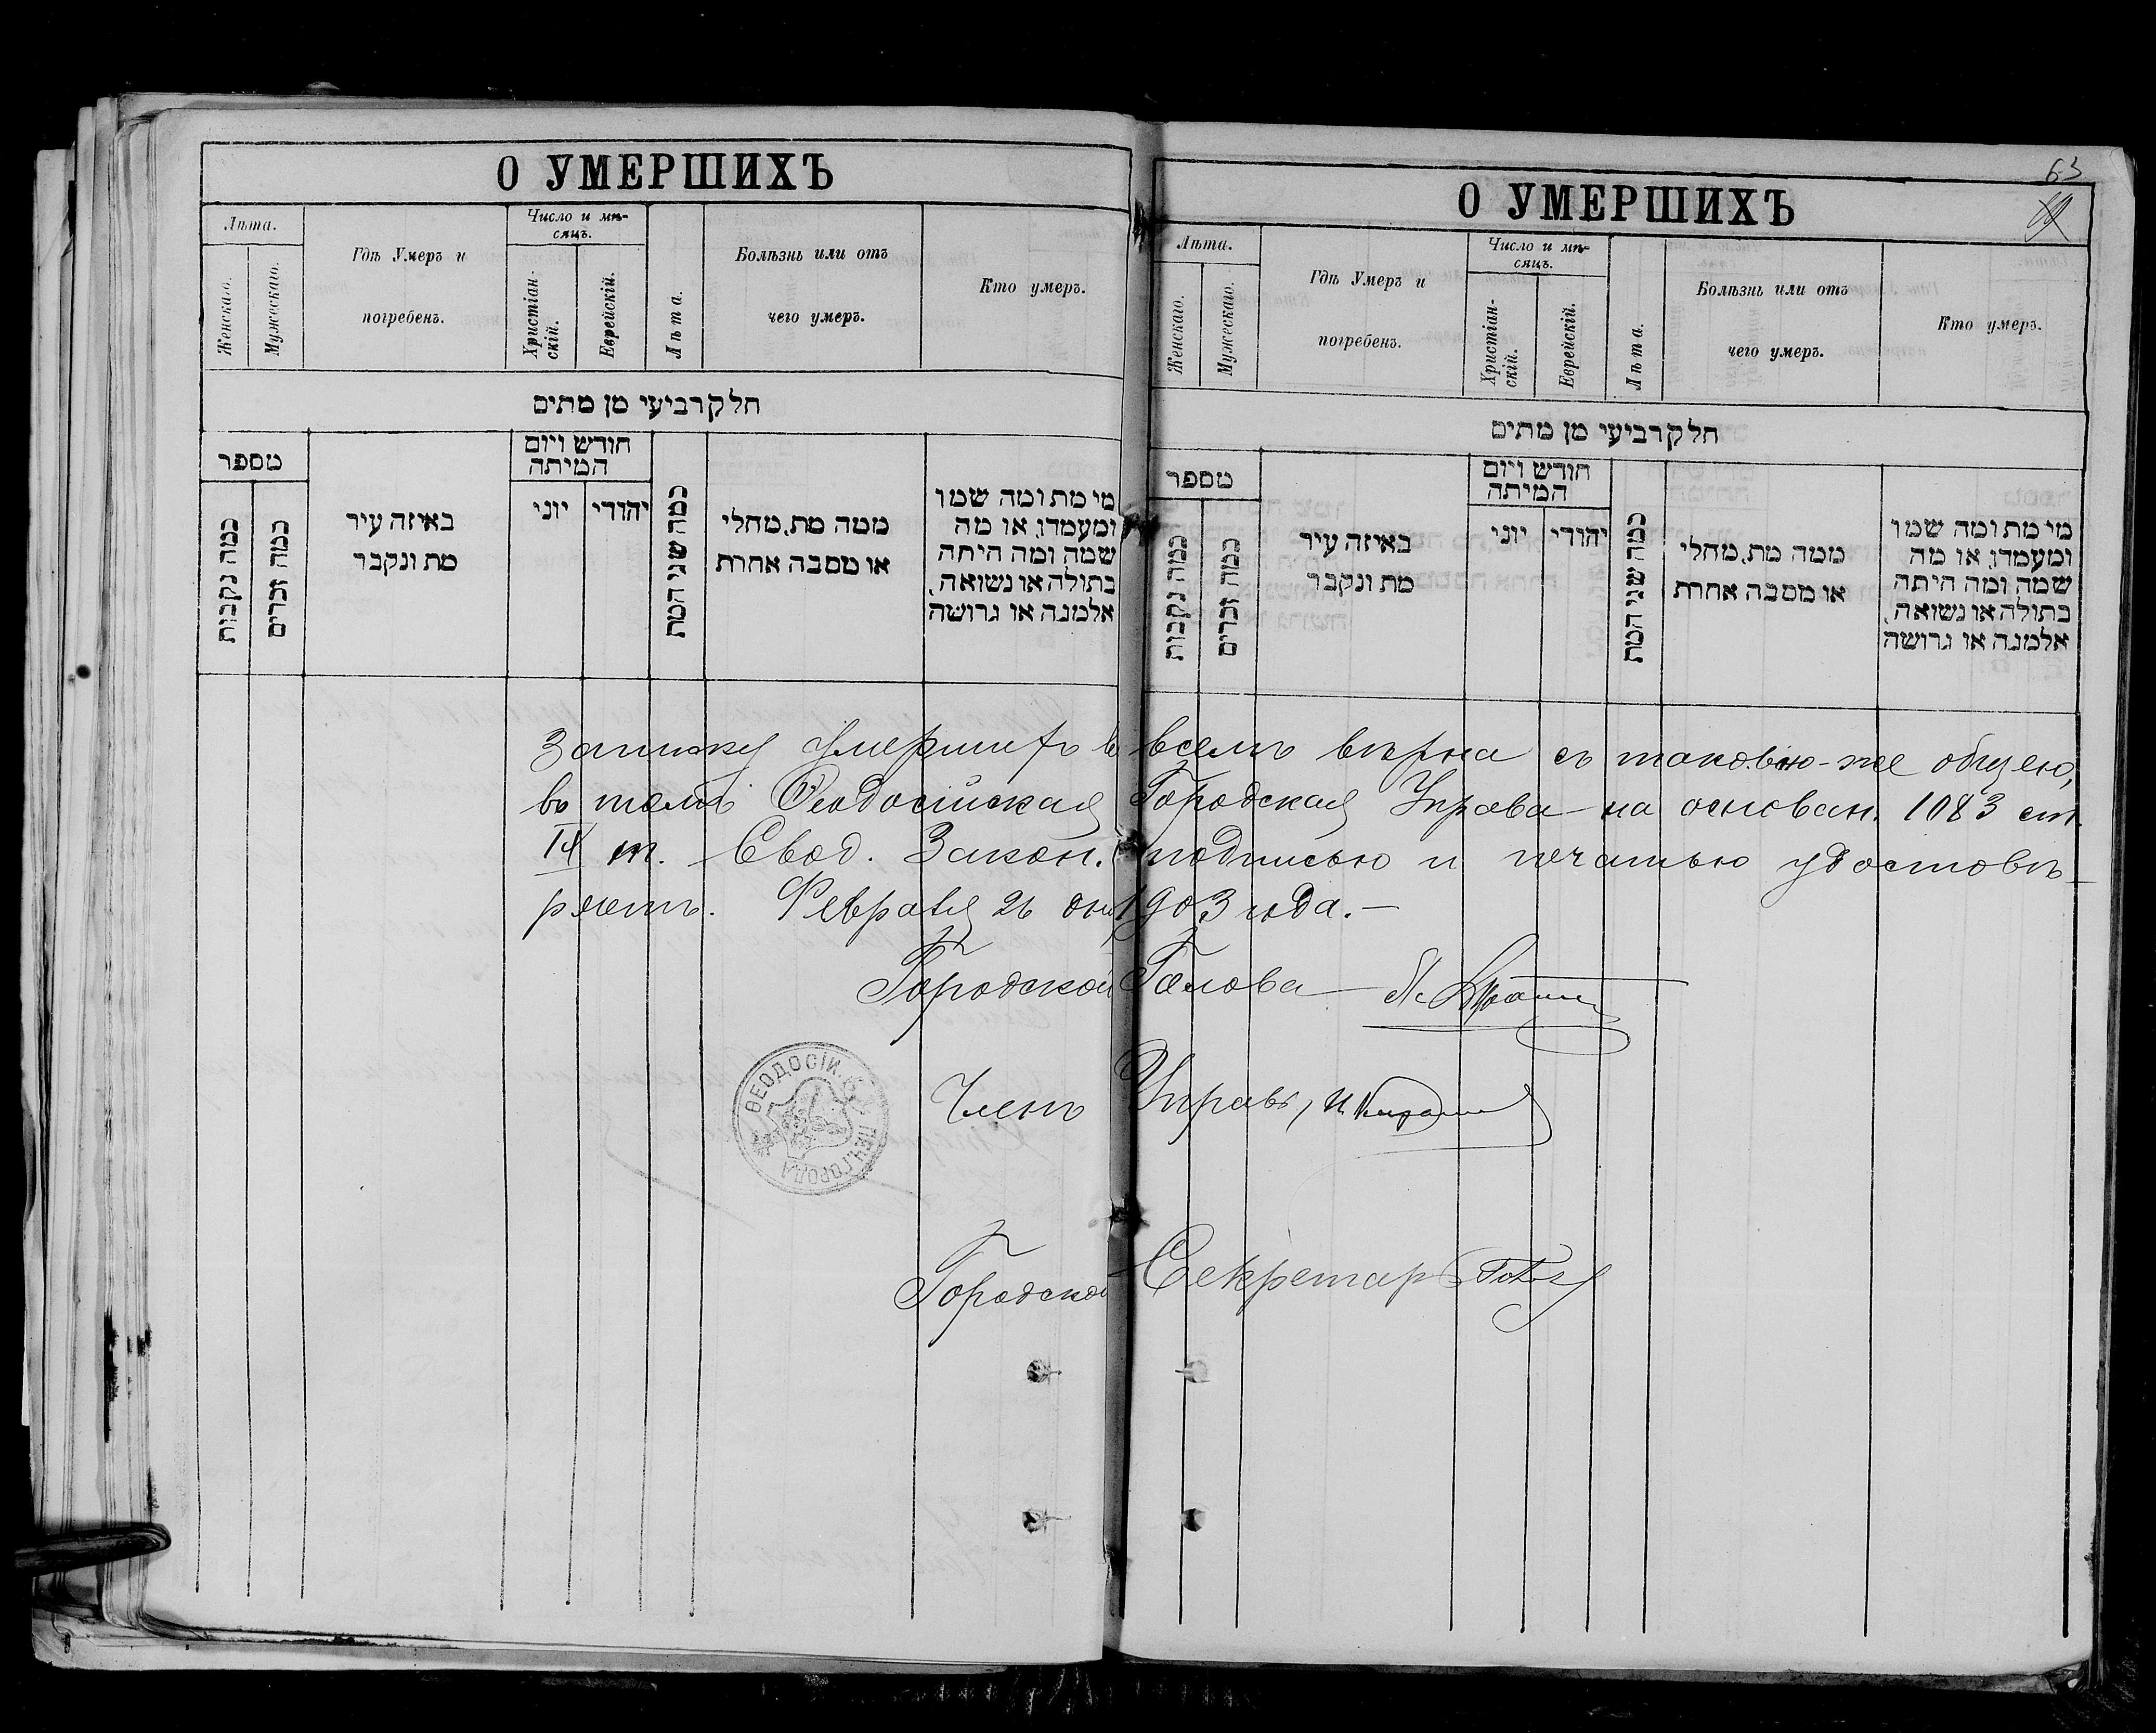 О УМЕРШИХЪ
Лѣта.
Женскаго.
Мужескаго.
Гдѣ Умеръ и
погребенъ.
Число и мѣ-
сяцъ.
Христіан-
скій.
Еврейскій.
Лѣта.
Болѣзнь или отъ
чего умеръ.
Кто умеръ.
חלק רביעי מן מתים
מספר
כמה נקבות
כמה זכרים
באיזה עיר
מת ונקבר
חודש ויום
המיתה
יוני
יהודי
כמה שני המת
ממה מת, מחלי
או מסבה אחרת
מי מת ומה שמו
ומעמדו, או מה
שמה ומה היתה
בתולה או נשואה,
אלמנה או גרושה
63
О УМЕРШИХЪ
Лѣта.
Женскаго.
Мужескаго.
Гдѣ Умеръ и
погребенъ.
Число и мѣ-
сяцъ.
Христіан-
скій.
Еврейскій.
Лѣта.
Болѣзнь или отъ
чего умеръ.
Кто умеръ.
חלק רביעי מן מתים
מספר
כמה נקבות
כמה זכרים
באיזה עיר
מת ונקבר
חודש ויום
המיתה
יוני
יהודי
כמה שני המת
ממה מת, מחלי
או מסבה אחרת
מי מת ומה שמו
ומעמדו, או מה
שמה ומה היתה
בתולה או נשואה,
אלמנה או גרושה
умершихъ во всемъ вѣрна съ таковою-же общею,
въ томъ Ѳеодосійская Городская Управа на основан. 1083 ст.
IX т. Свод. Закон. подписью и печатью удостовѣ-
ряетъ. Февраля 26 дня 1903 года.—
Городской Голова
Членъ Управы,
ѲЕОДОСІЙ. ГОРОДА
Городской Секретарь